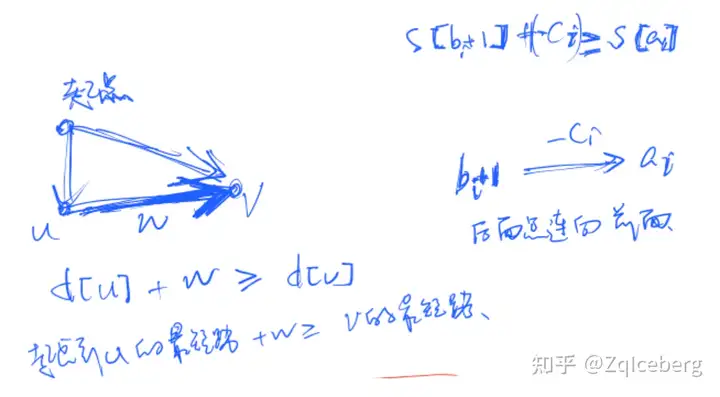 S[bᵢ+1] + (-Cᵢ) ≥ S[aᵢ]
起点
u
w
V
bᵢ+1
-Cᵢ
aᵢ
后面点连向前面
d[u] + w ≥ d[v]
起点到u的最短路 + w ≥ V的最短路、
知乎 @ZqIceberg